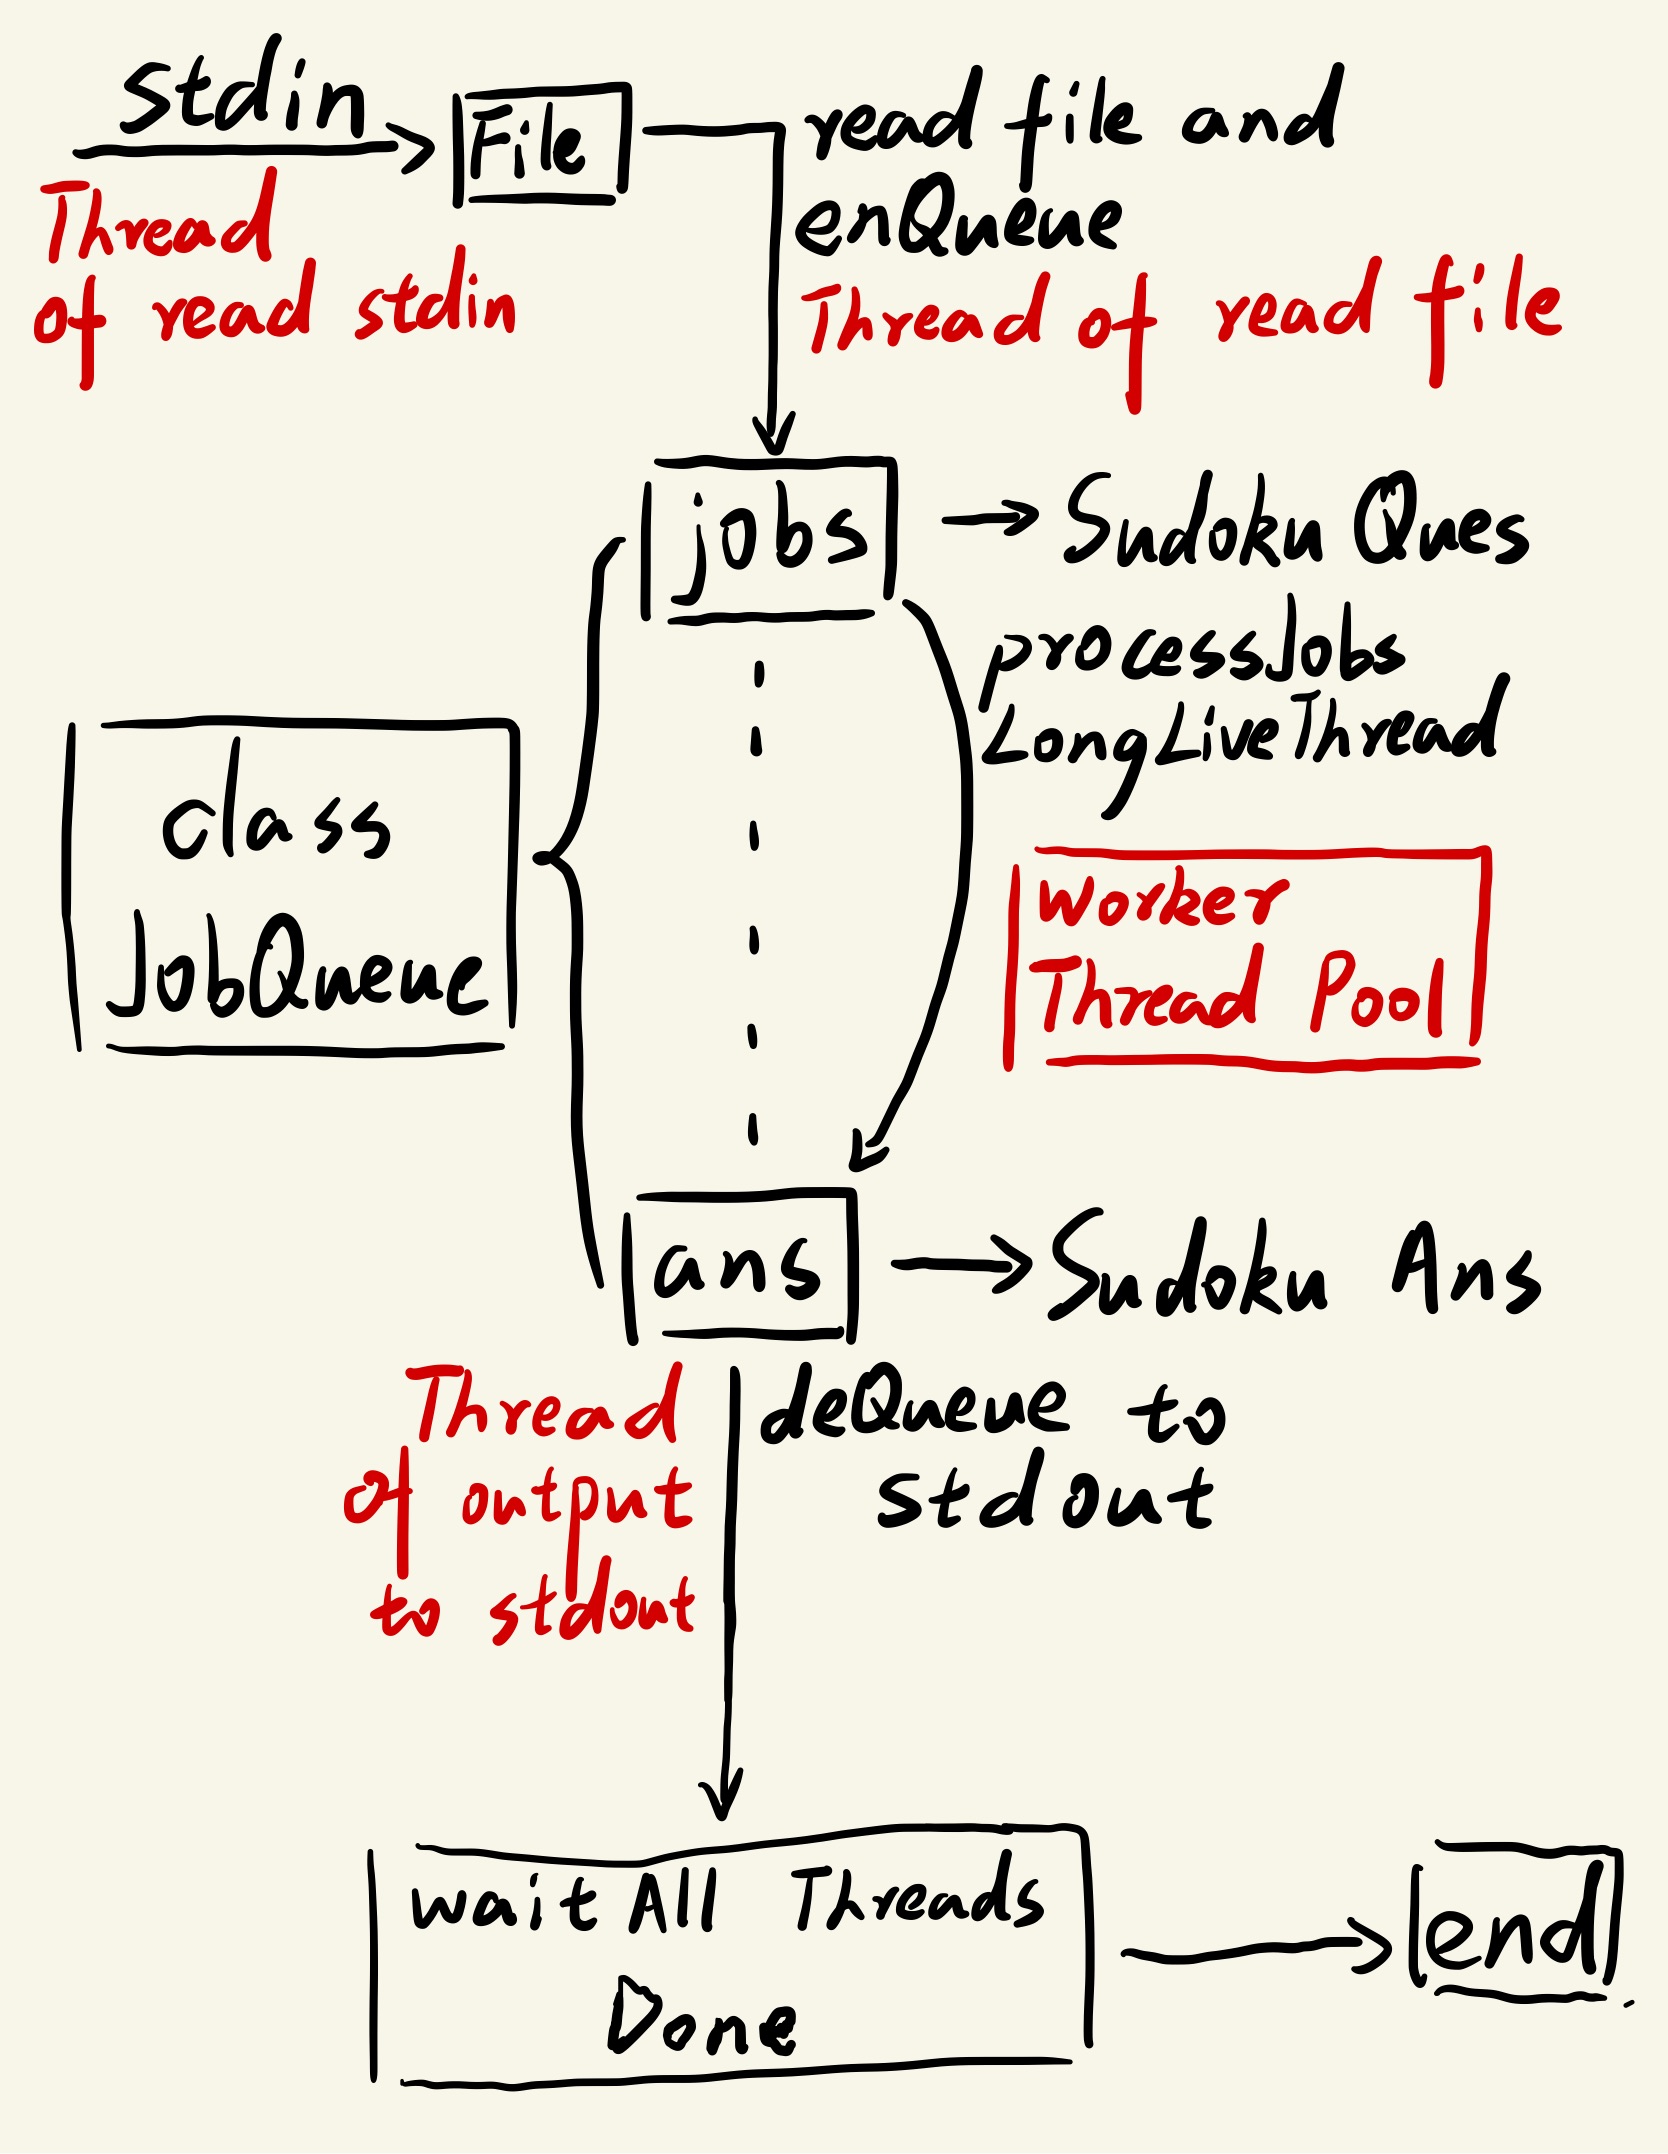 stdin
File
read file and
enQueue
Thread
of read stdin
Thread of read file
jobs
Sudoku Ques
processJobs
LongLiveThread
class
JobQueue
Worker
Thread Pool
ans
Sudoku Ans
Thread
of output
to stdout
deQueue to
stdout
wait All Threads
Done
end